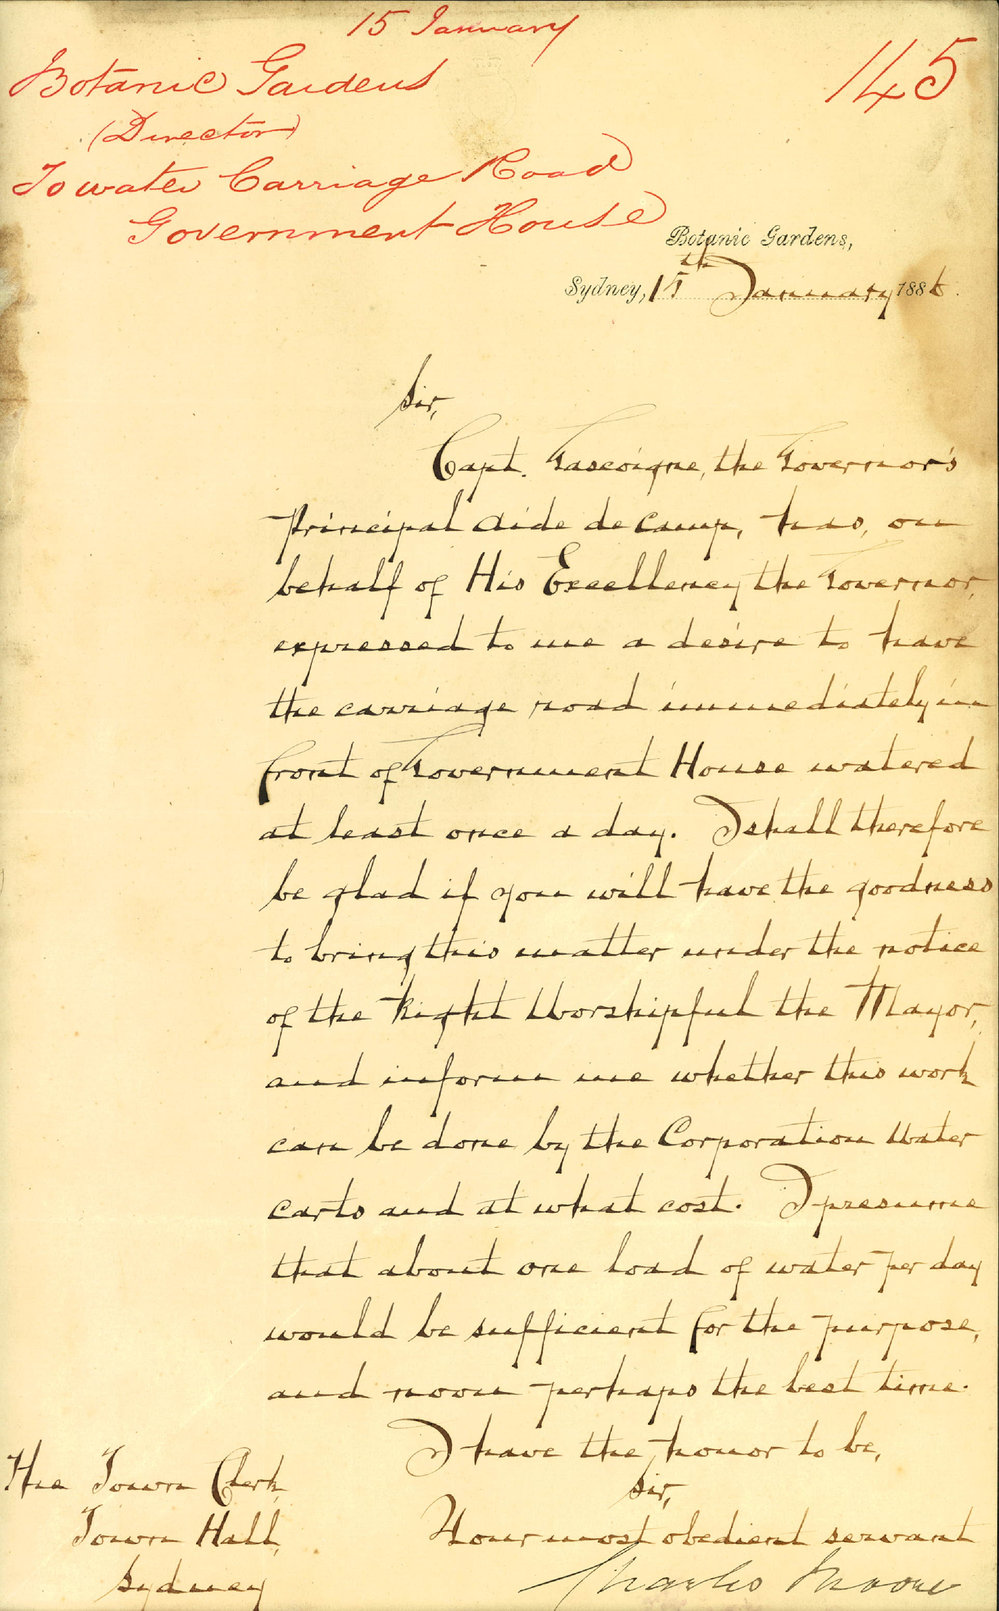 15 January
145
Botanic Gardens
(Director)
To water Carriage Road
Government House
Botanic Gardens,
Sydney, 15th January 1886.
Sir,
Capt. Gascoigne, the Governor's
Principal Aide de Camp, has, on
behalf of His Excellency the Governor,
expressed to me a desire to have
the carriage road immediately in
front of Government House watered
at least once a day. I shall therefore
be glad if you will have the goodness
to bring this matter under the notice
of the Right Worshipful the Mayor,
and inform me whether this work
can be done by the Corporation Water
carts and at what cost. I presume
that about one load of water per day
would be sufficient for the purpose,
and noon perhaps the best time.
I have the honor to be,
Sir,
Your most obedient servant
Charles Moore
The Town Clerk,
Town Hall,
Sydney